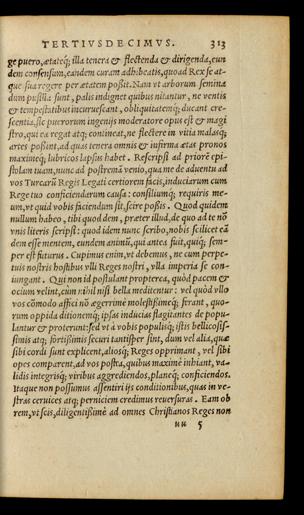 TERTIVSDECIMVS. 313
ge puero, ætateq́; illa tenera & flectenda & dirigenda, eun
dem consensum, eandem curam adhibeatis, quoad Rex se at-
que sua regere per ætatem possit. Nam vt arborum semina
dum pusilla sunt, palis indignet quibus nitantur, ne ventis
& tempestatibus incuruescant, obliquitatemq́; ducant cre-
scentia, sic puerorum ingenijs moderatore opus est & magi
stro, qui ea regat atq; contineat, ne flectere in vitia malasq́;
artes possint, ad quas tenera omnis & infirma ætas pronos
maximeq́; lubricos lapsus habet. Rescripsi ad priorē epi-
stolam tuam, nunc ad postremā venio, qua me de aduentu ad
vos Turcarū Regis Legati certiorem facis, induciarum cum
Rege tuo conficiendarum causa: consiliumq́; requiris me-
um, vt quid vobis faciendum sit, scire possis. Quod quidem
nullum habeo, tibi quod dem, præter illud, de quo ad te nō
vnis literis scripsi: quod idem nunc scribo, nobis scilicet eā
dem esse mentem, eundem animū, qui antea fuit, quiq́; sem-
per est futurus. Cupimus enim, vt debemus, ne cum perpe-
tuis nostris hostibus vlli Reges nostri, vlla imperia se con-
iungant. Qui non id postulant propterea, quòd pacem &
ocium velint, cùm nihil nisi bella meditentur: vel quòd vllo
vos cōmodo affici nō ægerrimè molestissimeq́; ferant, quo-
rum oppida ditionemq́; ipsas inducias flagitantes de popu-
lantur & proterunt: sed vt à vobis populisq́; istis bellicosis-
simis atq; fortissimis securi tantisper sint, dum vel alia, quæ
sibi cordi sunt explicent, aliosq́; Reges opprimant, vel sibi
opes comparent, ad vos postea, quibus maximè inhiant, va-
lidis integrisq́; viribus aggrediendos, planeq́; conficiendos.
Itaque non possumus assentiri ijs conditionibus, quas in ve-
stras ceruices atq; perniciem credimus reuersuras. Eam ob
rem, vt scis, diligentissimè ad omnes Christianos Reges non
uu 5